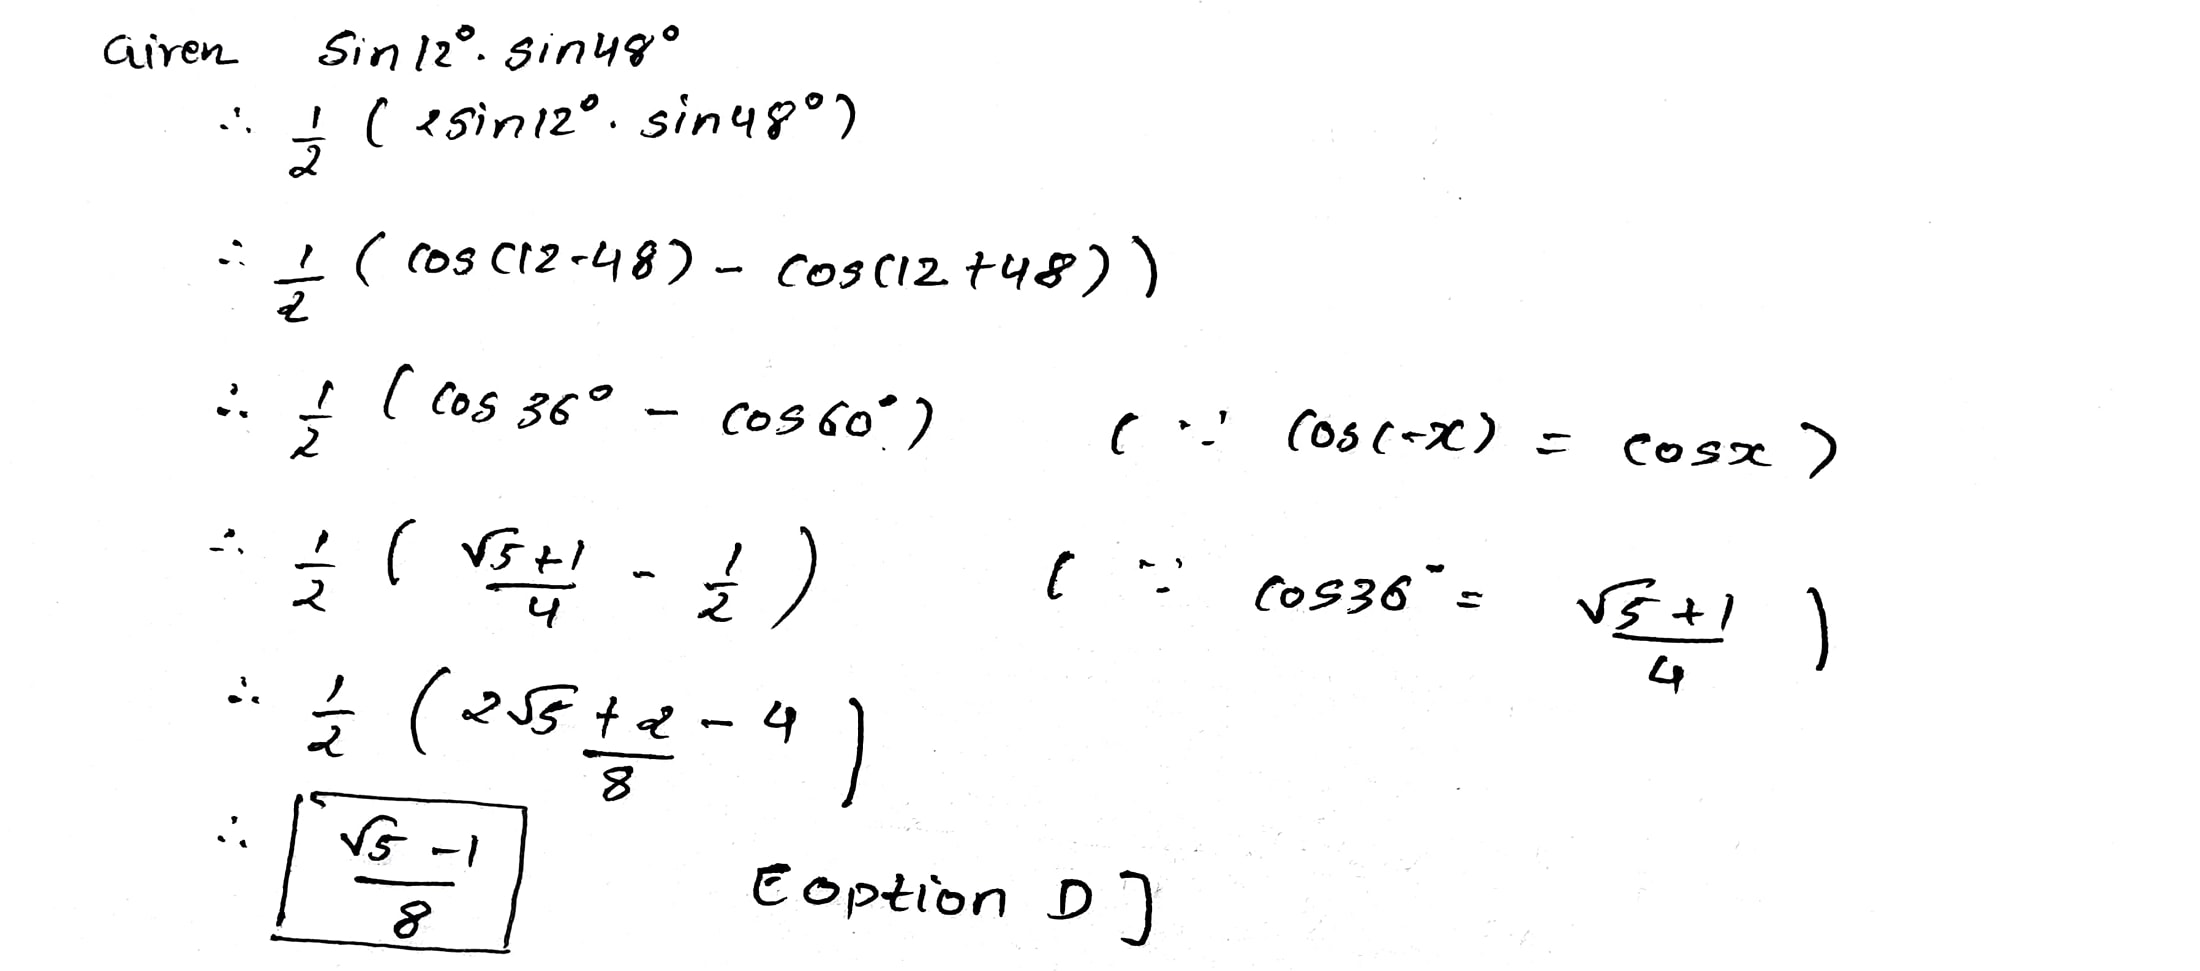 Given sin12°. sin48°
∴ 1/2 (2sin12°. sin48°)
∴ 1/2 (cos(12-48) - cos(12+48))
∴ 1/2 (cos36° - cos60°) (∵ cos(-x) = cosx)
∴ 1/2 (√5+1/4 - 1/2) (∵ cos36° = √5+1/4)
∴ 1/2 (2√5+2-4/8)
∴ √5-1/8 [option D]